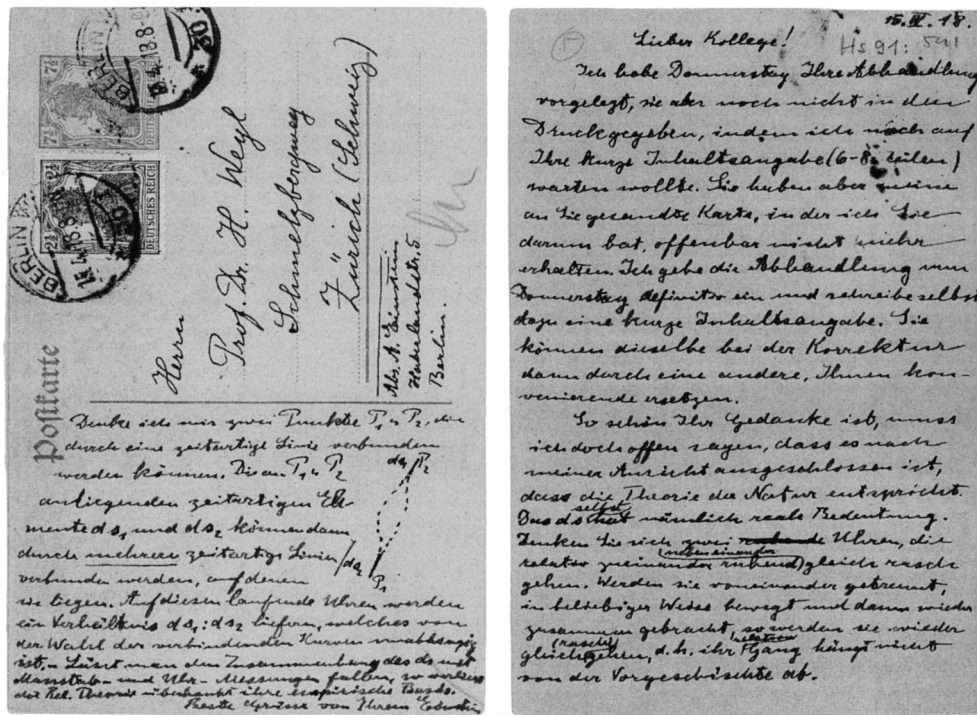 BERLIN W
15.4.18.8-9
30
7½ 7½
DEUTSCHES REICH
2½ 2½
DEUTSCHES REICH
BERLIN W
15.4.18.8-9
30
Postkarte
Herrn
Prof. Dr. H. Weyl
Schmelzbergweg
Zürich (Schweiz)
Abs. A. Einstein
Haberlandstr. 5
Berlin.
Denke ich mir zwei Punkte P₁ u P₂, die
durch eine zeitartige Linie verbunden
werden können. Die an P₁ u P₂
anliegenden zeitartigen Ele-
mente ds₁ und ds₂ können dann
durch mehrere zeitartige Linien
verbunden werden, auf denen
sie liegen. Auf diesen laufende Uhren werden
ein Verhältnis ds₁ : ds₂ liefern, welches von
der Wahl der verbindenden Kurven unabhängig
ist. – Lässt man den Zusammenhang des ds mit
Massstab- und Uhr-Messungen fallen, so verliert
die Rel. Theorie überhaupt ihre empirische Basis.
Beste Grüsse von Ihrem Einstein
ds₁ P₂
ds₂
P₁
15. IV. 18.
Hs 91: 541
Lieber Kollege!
Ich habe Donnerstag Ihre Abhandlung
vorgelegt, sie aber noch nicht in den
Druck gegeben, indem ich noch auf
Ihre kurze Inhaltsangabe (6-8 Zeilen)
warten wollte. Sie haben aber meine
an Sie gesandte Karte, in der ich Sie
darum bat, offenbar nicht mehr
erhalten. Ich gebe die Abhandlung nun
Donnerstag definitiv ein und schreibe selbst
dazu eine kurze Inhaltsangabe. Sie
können dieselbe bei der Korrektur
dann durch eine andere, Ihnen kon-
venierende ersetzen.
So schön Ihr Gedanke ist, muss
ich doch offen sagen, dass es nach
meiner Ansicht ausgeschlossen ist,
dass die Theorie der Natur entspricht.
Das ds selbst hat nämlich reale Bedeutung.
Denken Sie sich zwei Uhren, die
relativ zueinander ruhend (nebeneinander) gleich rasch
gehen. Werden sie voneinander getrennt,
in beliebiger Weise bewegt und dann wieder
zusammen gebracht, so werden sie wieder
gleich (rasch) gehen, d. h. ihr relativer Gang hängt nicht
von der Vorgeschichte ab.